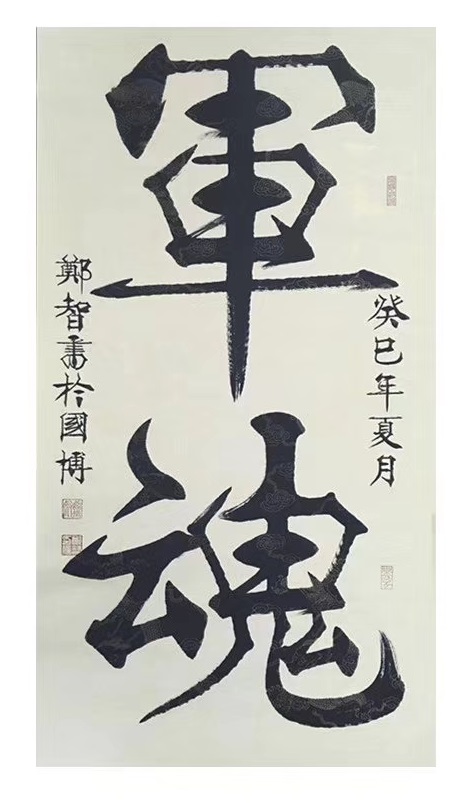 軍魂
癸巳年夏月
鄭智書於國博